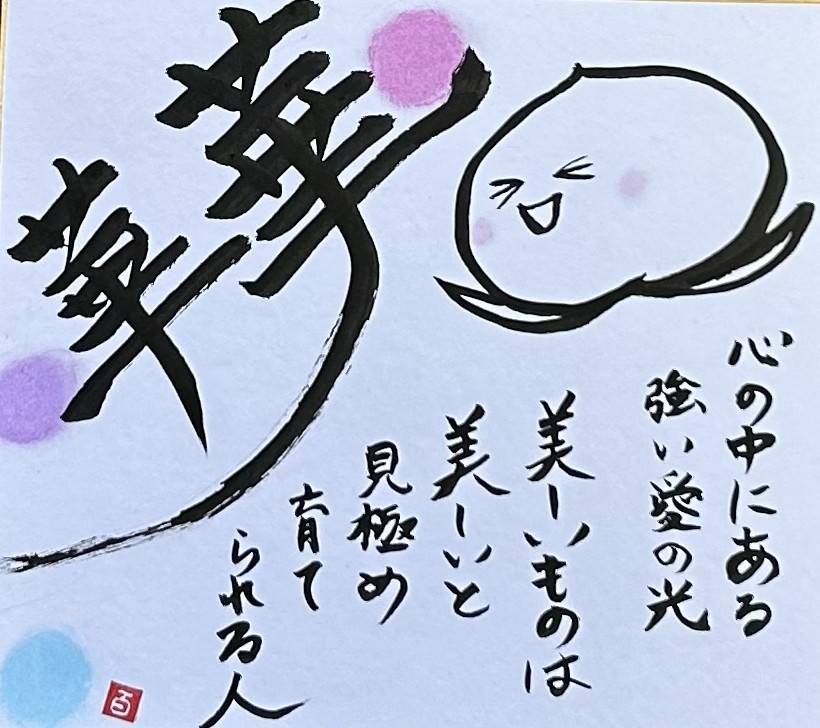 華華
心の中にある
強い愛の光
美しいものは
美しいと
見極め
育て
られる人
百